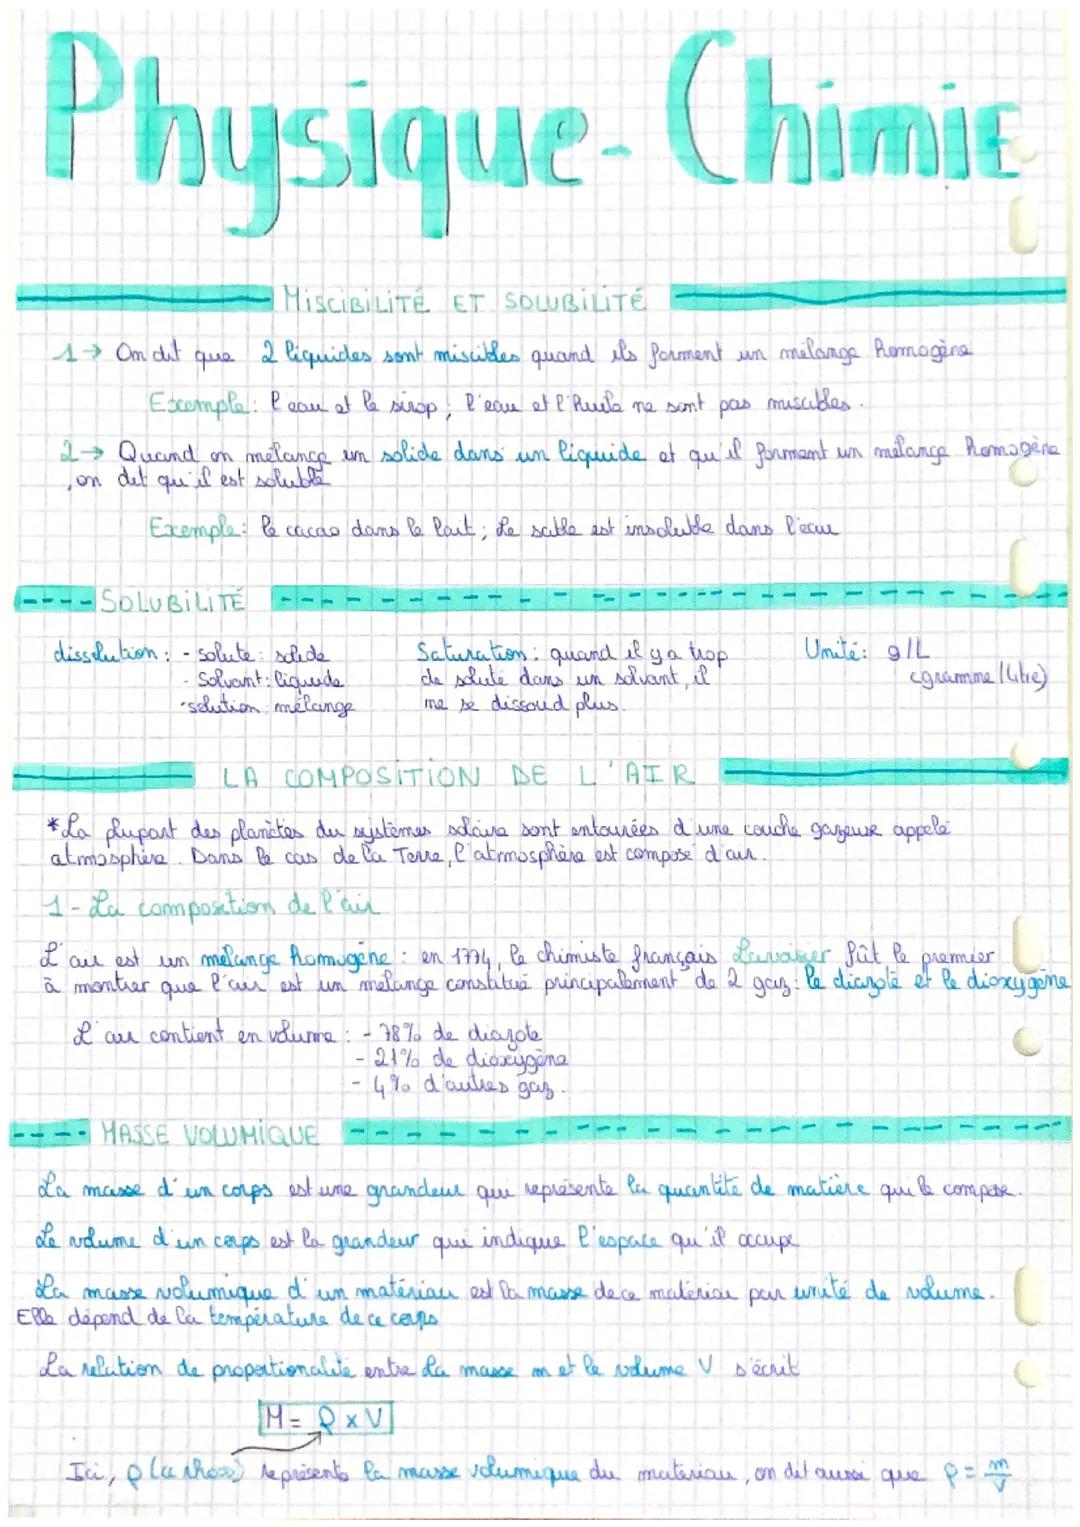 Physique-Chimie
MISCIBILITÉ ET SOLUBILITÉ
1→ On dit que 2 liquides sont miscibles quand ils forment un mélange homogène
Exemple: l'eau et le sirop; l'eau et l'huile ne sont pas miscibles.
2→ Quand on mélange un solide dans un liquide et qu'il forment un mélange homogène
, on dit qu'il est soluble
Exemple: le cacao dans le lait; le sable est insoluble dans l'eau
SOLUBILITÉ
dissolution: - soluté: solide
- Solvant: liquide
- solution: mélange
Saturation: quand il y a trop
de soluté dans un solvant, il
ne se dissoud plus.
Unité: g/L
(gramme/litre)
LA COMPOSITION DE L'AIR
*La plupart des planètes du systèmes solaire sont entourées d'une couche gazeuse appelé
atmosphère. Dans le cas de la Terre, l'atmosphère est composé d'air.
1- La composition de l'air
L'air est un mélange homogène: en 1774, le chimiste français Lavoisier fût le premier
à montrer que l'air est un mélange constitué principalement de 2 gaz: le diazote et le dioxygène
L'air contient en volume: - 78% de diazote
- 21% de dioxygène
- 4% d'autres gaz.
MASSE VOLUMIQUE
La masse d'un corps est une grandeur qui représente la quantité de matière qui le compose.
Le volume d'un corps est la grandeur qui indique l'espace qu'il occupe
La masse volumique d'un matériau est la masse de ce matériau par unité de volume.
Elle dépend de la température de ce corps
La relation de proportionalité entre la masse m et le volume V s'écrit
M = ρ x V
Ici, ρ représente la masse volumique du matériau, on dit aussi que ρ = m/V